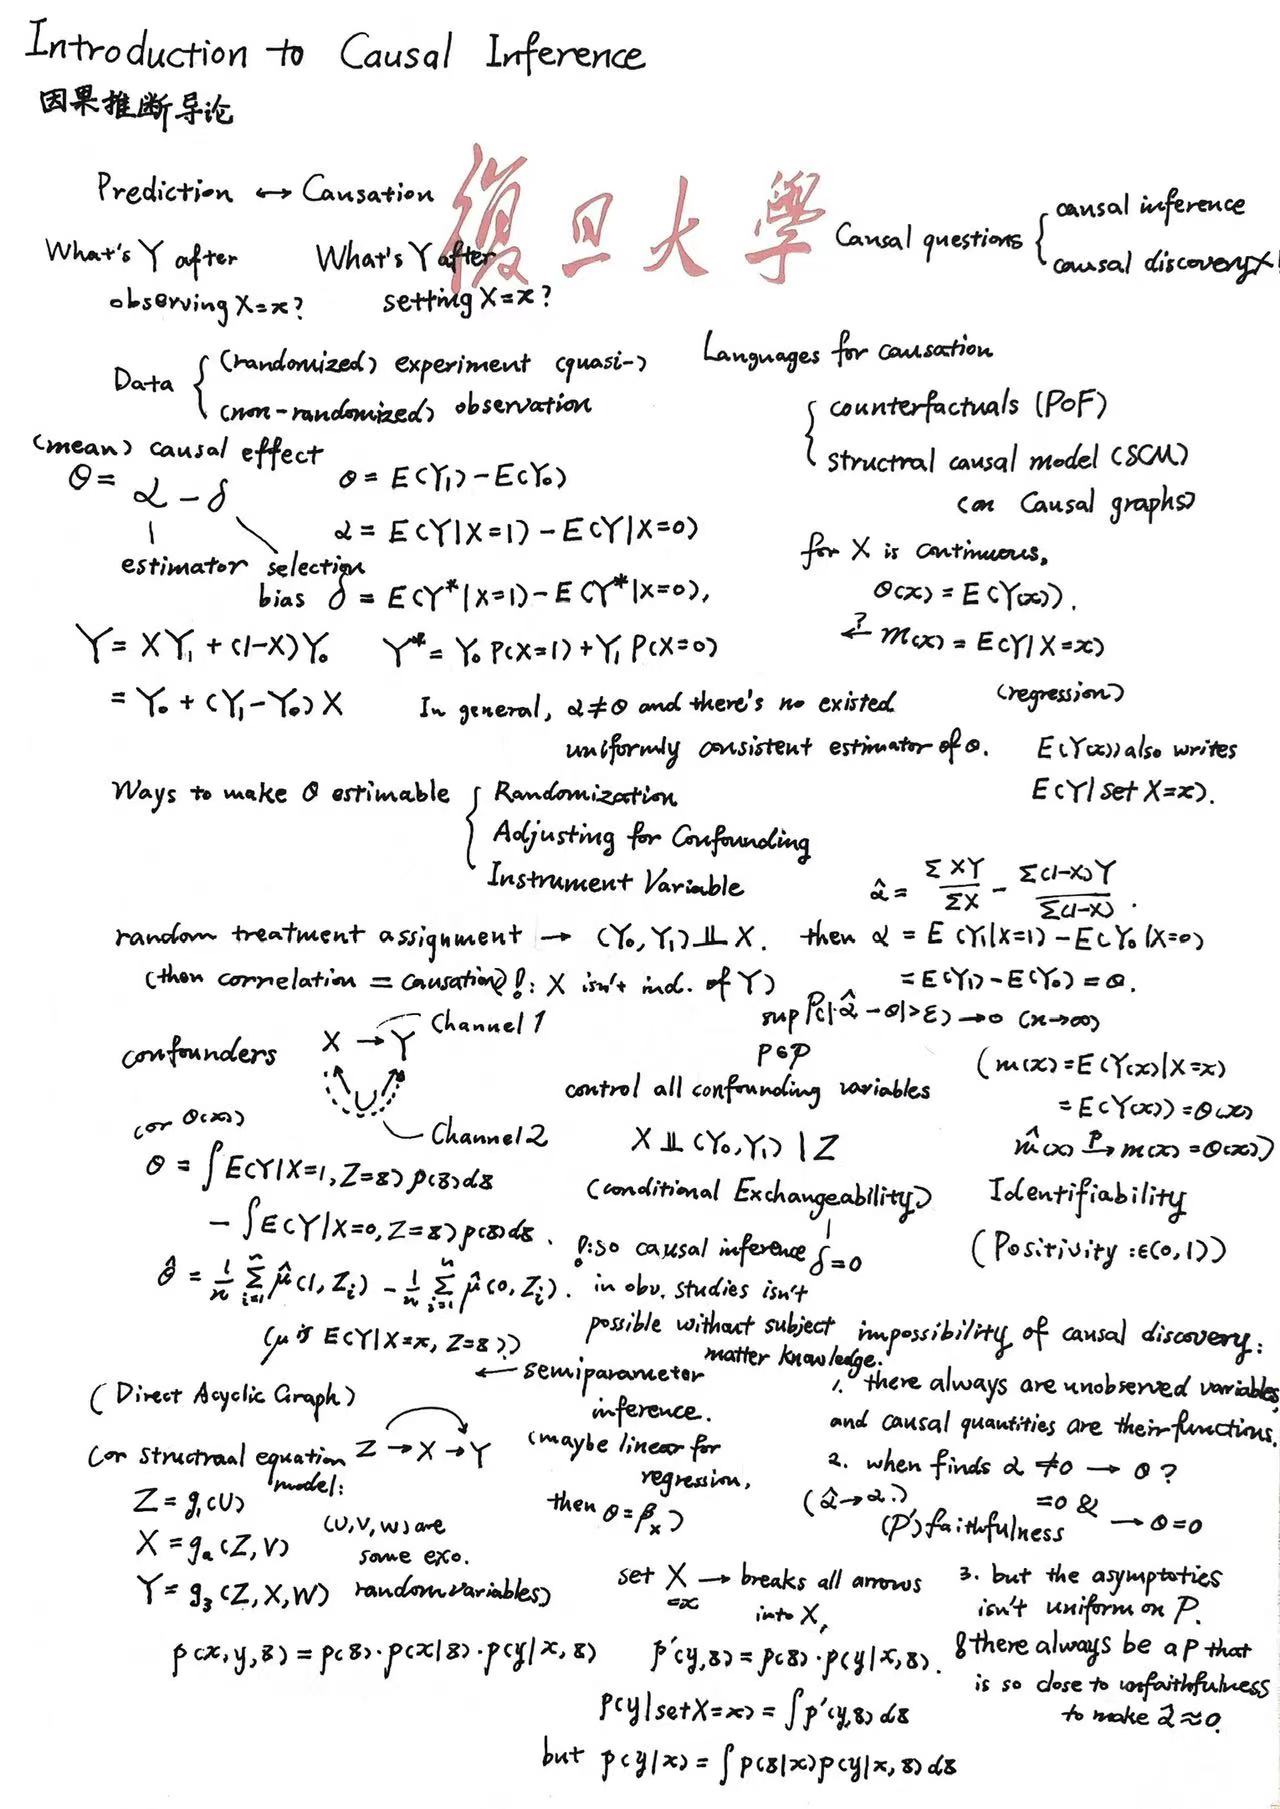 Introduction to Causal Inference
因果推断导论
復旦大學
Prediction ↔ Causation
What's Y after
observing X=x?
What's Y after
setting X=x?
Causal questions { causal inference
causal discovery ×!
Data { (randomized) experiment (quasi-)
(non-randomized) observation
Languages for causation
{ counterfactuals (PoF)
structral causal model (SCM)
(on Causal graphs)
(mean) causal effect
θ = α - δ
estimator selection
bias
θ = E(Y₁) - E(Y₀)
α = E(Y|X=1) - E(Y|X=0)
δ = E(Y*|X=1) - E(Y*|X=0),
for X is continuous,
θ(x) = E(Y(x)).
?← m(x) = E(Y|X=x)
(regression)
Y = XY₁ + (1-X)Y₀
= Y₀ + (Y₁-Y₀)X
Y* = Y₀ P(X=1) + Y₁ P(X=0)
In general, α≠θ and there's no existed
uniformly consistent estimator of θ.
E(Y(x)) also writes
E(Y|set X=x).
Ways to make θ estimable { Randomization
Adjusting for Confounding
Instrument Variable
α̂ = ΣXY/ΣX - Σ(1-X)Y/Σ(1-X).
random treatment assignment → (Y₀, Y₁) ⫫ X. then α = E(Y₁|X=1) - E(Y₀|X=0)
= E(Y₁) - E(Y₀) = θ.
(then correlation = causation)!: X isn't ind. of Y)
sup P(|α̂ - θ|>ε) → 0 (n→∞)
P∈𝒫
confounders
X → Y
U
Channel 1
Channel 2
control all confounding variables
X ⫫ (Y₀, Y₁) | Z
(conditional Exchangeability)
δ=0
(m(x) = E(Y(x)|X=x)
= E(Y(x)) = θ(x)
m̂(x) →ᴾ m(x) = θ(x))
Identifiability
(Positivity: ∈(0,1))
(or θ(x))
θ = ∫E(Y|X=1, Z=z) p(z)dz
- ∫E(Y|X=0, Z=z) p(z)dz.
θ̂ = 1/n Σⁿᵢ₌₁ μ̂(1, Zᵢ) - 1/n Σⁿᵢ₌₁ μ̂(0, Zᵢ).
(μ is E(Y|X=x, Z=z))
!: so causal inference
in obv. studies isn't
possible without subject
matter knowledge.
← semiparameter
inference.
(maybe linear for
regression,
then θ=βₓ)
impossibility of causal discovery:
1. there always are unobserved variables,
and causal quantities are their functions.
2. when finds α ≠0 → θ?
(α̂→α.)
=0 &
(P) faithfulness → θ=0
3. but the asymptotics
isn't uniform on P.
& there always be a P that
is so close to unfaithfulness
to make α̂≈0.
(Direct Acyclic Graph)
Z → X → Y
(or structraal equation
model:
Z = g₁(U)
X = g₂(Z, V)
Y = g₃(Z, X, W)
(U, V, W) are
some exo.
random variables)
set X → breaks all arrows
=x
into X,
p(x, y, z) = p(z)·p(x|z)·p(y|x, z)
p'(y, z) = p(z)·p(y|x, z).
p(y|set X=x) = ∫p'(y, z) dz
but p(y|x) = ∫p(z|x)p(y|x, z)dz